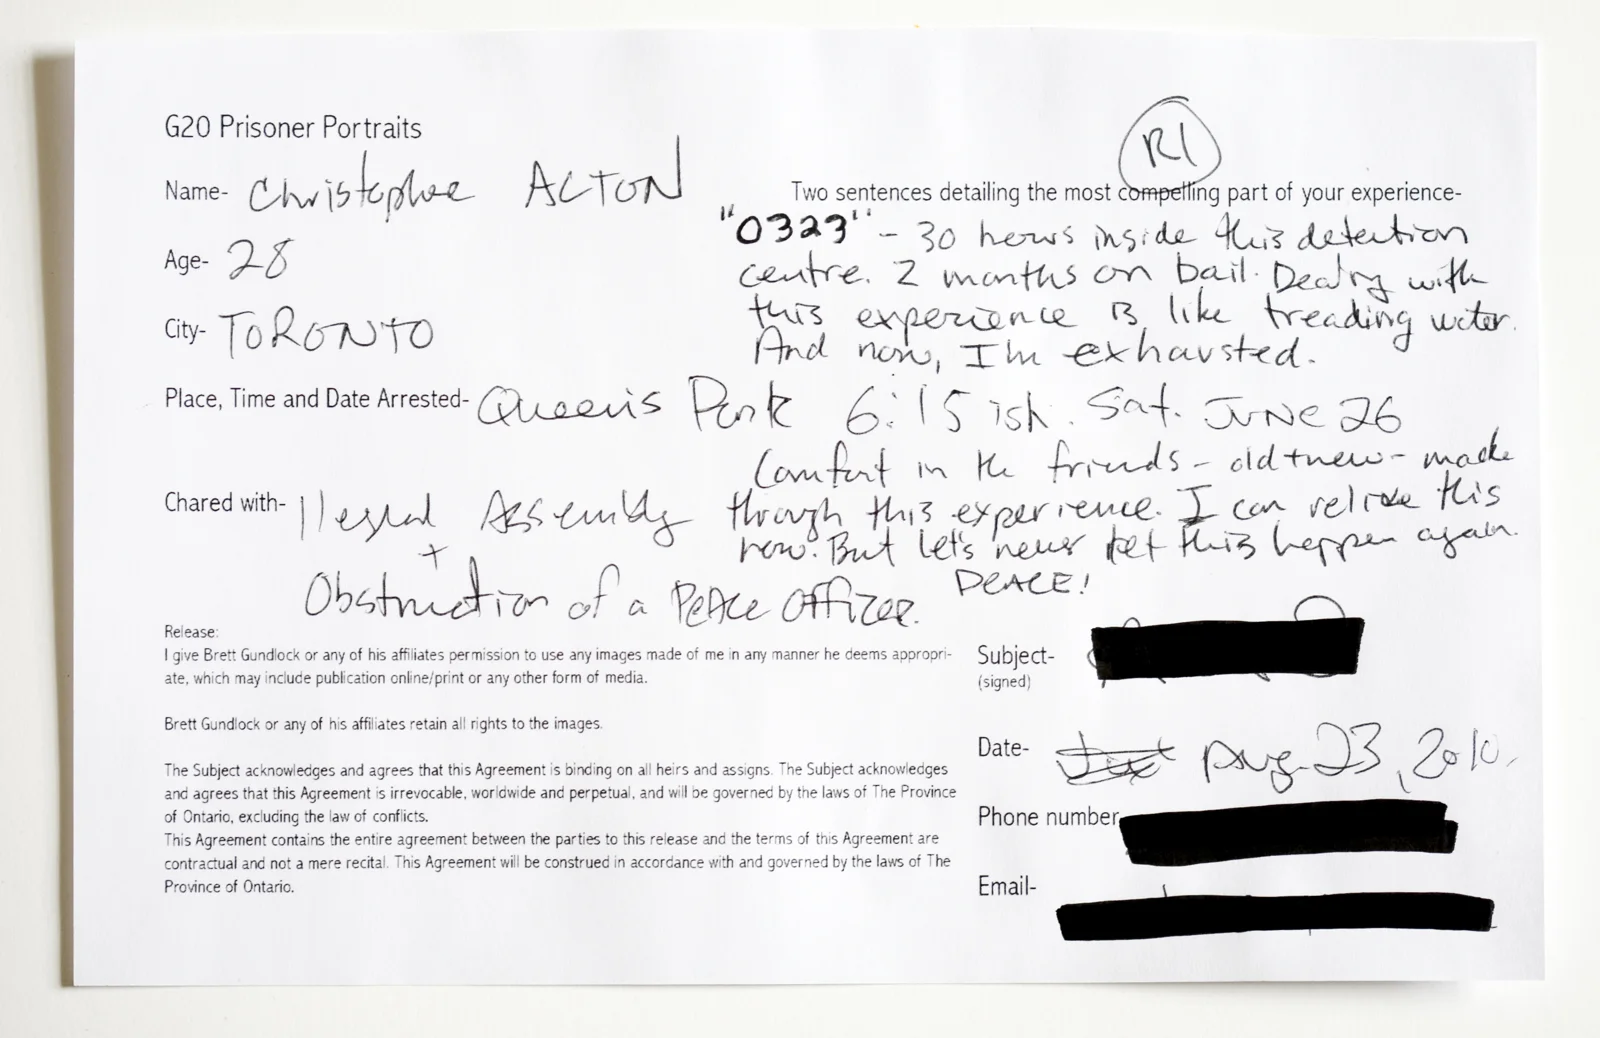 G20 Prisoner Portraits
R1
Name- Christopher ACTON
Age- 28
City- TORONTO
Two sentences detailing the most compelling part of your experience-
"0323" - 30 hours inside this detention
centre. 2 months on bail. Dealing with
this experience is like treading water.
And now, I'm exhausted.
Place, Time and Date Arrested- Queen's Park 6:15 ish. Sat. JUNE 26
Comfort in the friends - old + new - made
through this experience. I can relive this
now. But let's never let this happen again.
PEACE!
Chared with- Illegal Assembly
+
Obstruction of a PEACE OFFICER.
Release:
I give Brett Gundlock or any of his affiliates permission to use any images made of me in any manner he deems appropri-
ate, which may include publication online/print or any other form of media.
Brett Gundlock or any of his affiliates retain all rights to the images.
The Subject acknowledges and agrees that this Agreement is binding on all heirs and assigns. The Subject acknowledges
and agrees that this Agreement is irrevocable, worldwide and perpetual, and will be governed by the laws of The Province
of Ontario, excluding the law of conflicts.
This Agreement contains the entire agreement between the parties to this release and the terms of this Agreement are
contractual and not a mere recital. This Agreement will be construed in accordance with and governed by the laws of The
Province of Ontario.
Subject-
(signed)
Date- Aug 23, 2010.
Phone number
Email-